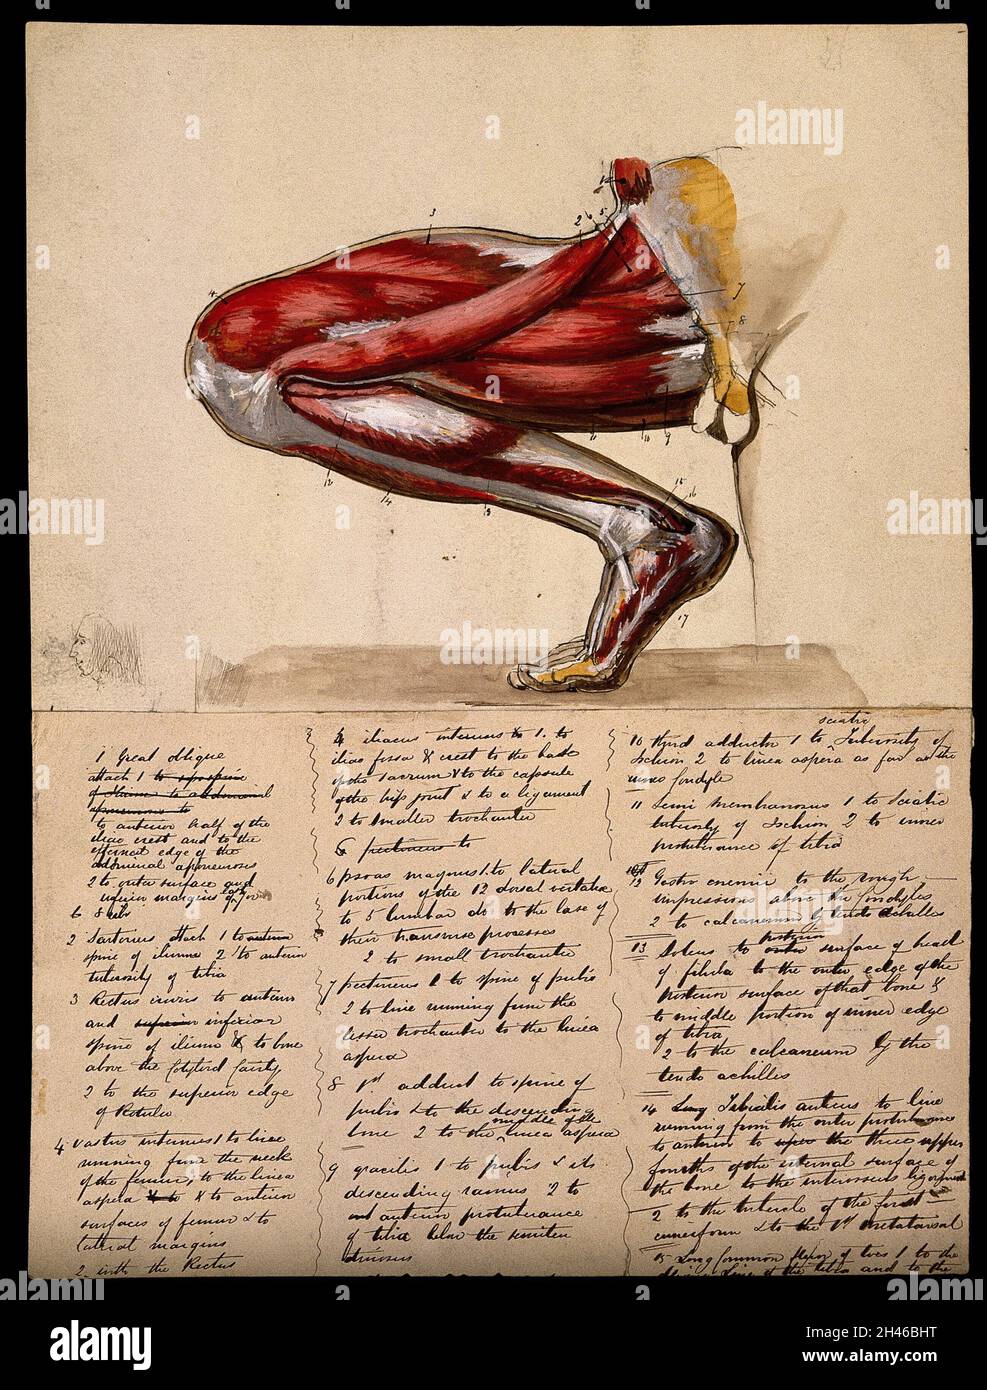 1 Great Oblique
attach 1 to spine
of Ilium to abdominal
aponeurosis to
to anterior half of the
iliac crest and to the
external edge of the
abdominal aponeurosis
2 to outer surface and
inferior margins of
8 ribs
2 Sartorius attach 1 to
spine of ilium 2 to
tuberosity of tibia
3 Rectus cruris to
and superior inferior
spine of ilium & to bone
above the Cotyloid Cavity
2 to the superior edge
of
4 Vastus internus 1 to line
running from the neck
of the femur, to the linea
aspera & to anterior
surfaces of femur & to
lateral margins
2 with the Rectus
iliacus internus 1. to
iliac fossa & crest to the base
of the sacrum & to the capsule
of the hip joint & to a ligament
2 to smaller trochanter
6 pectineus to
6 psoas magnus 1. to lateral
portions of the 12 dorsal
to 5 lumbar do to the base of
their transverse processes
2 to small trochanter
7 pectineus 1 to spine of pubis
2 to line running from the
lesser trochanter to the linea
aspera
8 1st adduct to spine of
pubis & to the descending
middle of the
bone 2 to the linea aspera
9 gracilis 1 to pubis & its
descending ramus 2 to
anterior protuberance
of tibia below the
sciatic
10 third adductor 1 to Tuberosity of
Ischion 2 to linea aspera as far as the
Condyle
11 Semi membranosus 1 to Sciatic
tuberosity of Ischion 2 to inner
protuberance of tibia
12 Gastrocnemii to the rough
impressions above the Condyles
2 to calcaneum by tendo Achilles
13 Soleus to surface of head
of fibula to the outer edge of the
posterior surface of that bone &
to middle portion of inner edge
of tibia
2 to the calcaneum by the
tendo achilles
14 Tibialis anticus to line
running from the outer protuberance
to anterior to the three upper
fourths of the internal surface of
the bone to the interosseus ligament
2 to the tubercle of the first
cuneiform & to the 1st metatarsal
15 Long Common flexor of toes 1 to the
Line of the tibia and to the
alamy
Image ID: 2H46BHT
www.alamy.com